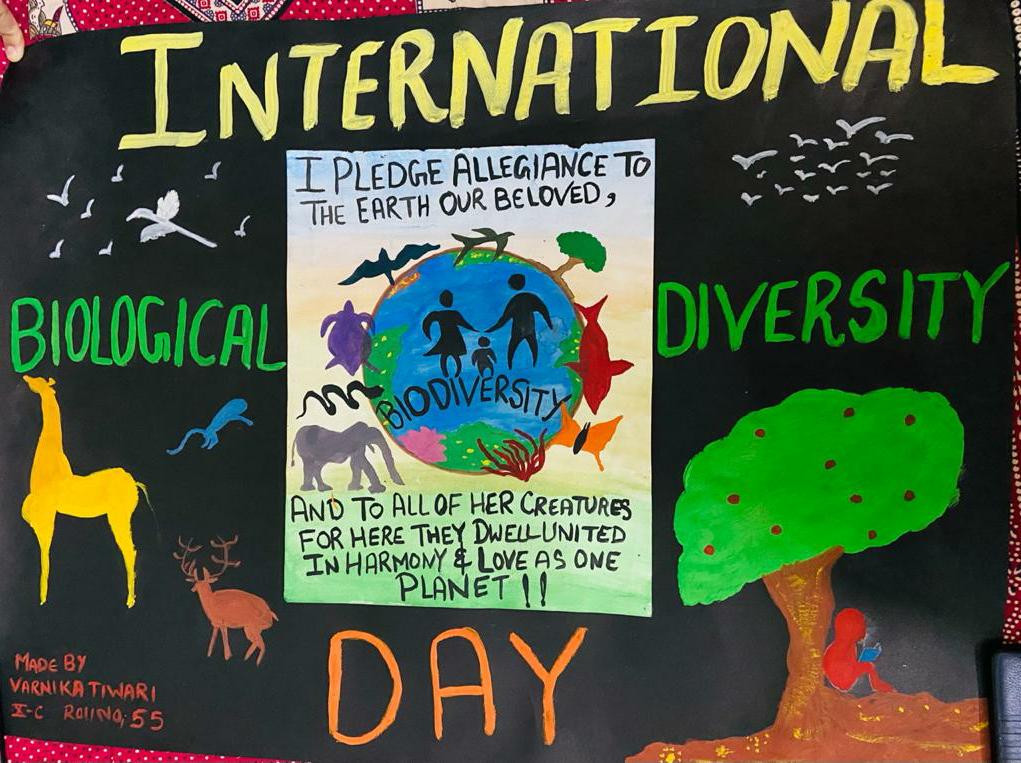 INTERNATIONAL
BIOLOGICAL
DIVERSITY
I PLEDGE ALLEGIANCE TO
THE EARTH OUR BELOVED,
BIODIVERSITY
AND TO ALL OF HER CREATURES
FOR HERE THEY DWELL UNITED
IN HARMONY & LOVE AS ONE
PLANET !!
DAY
MADE BY
VARNIKA TIWARI
X-C ROllNO; 55